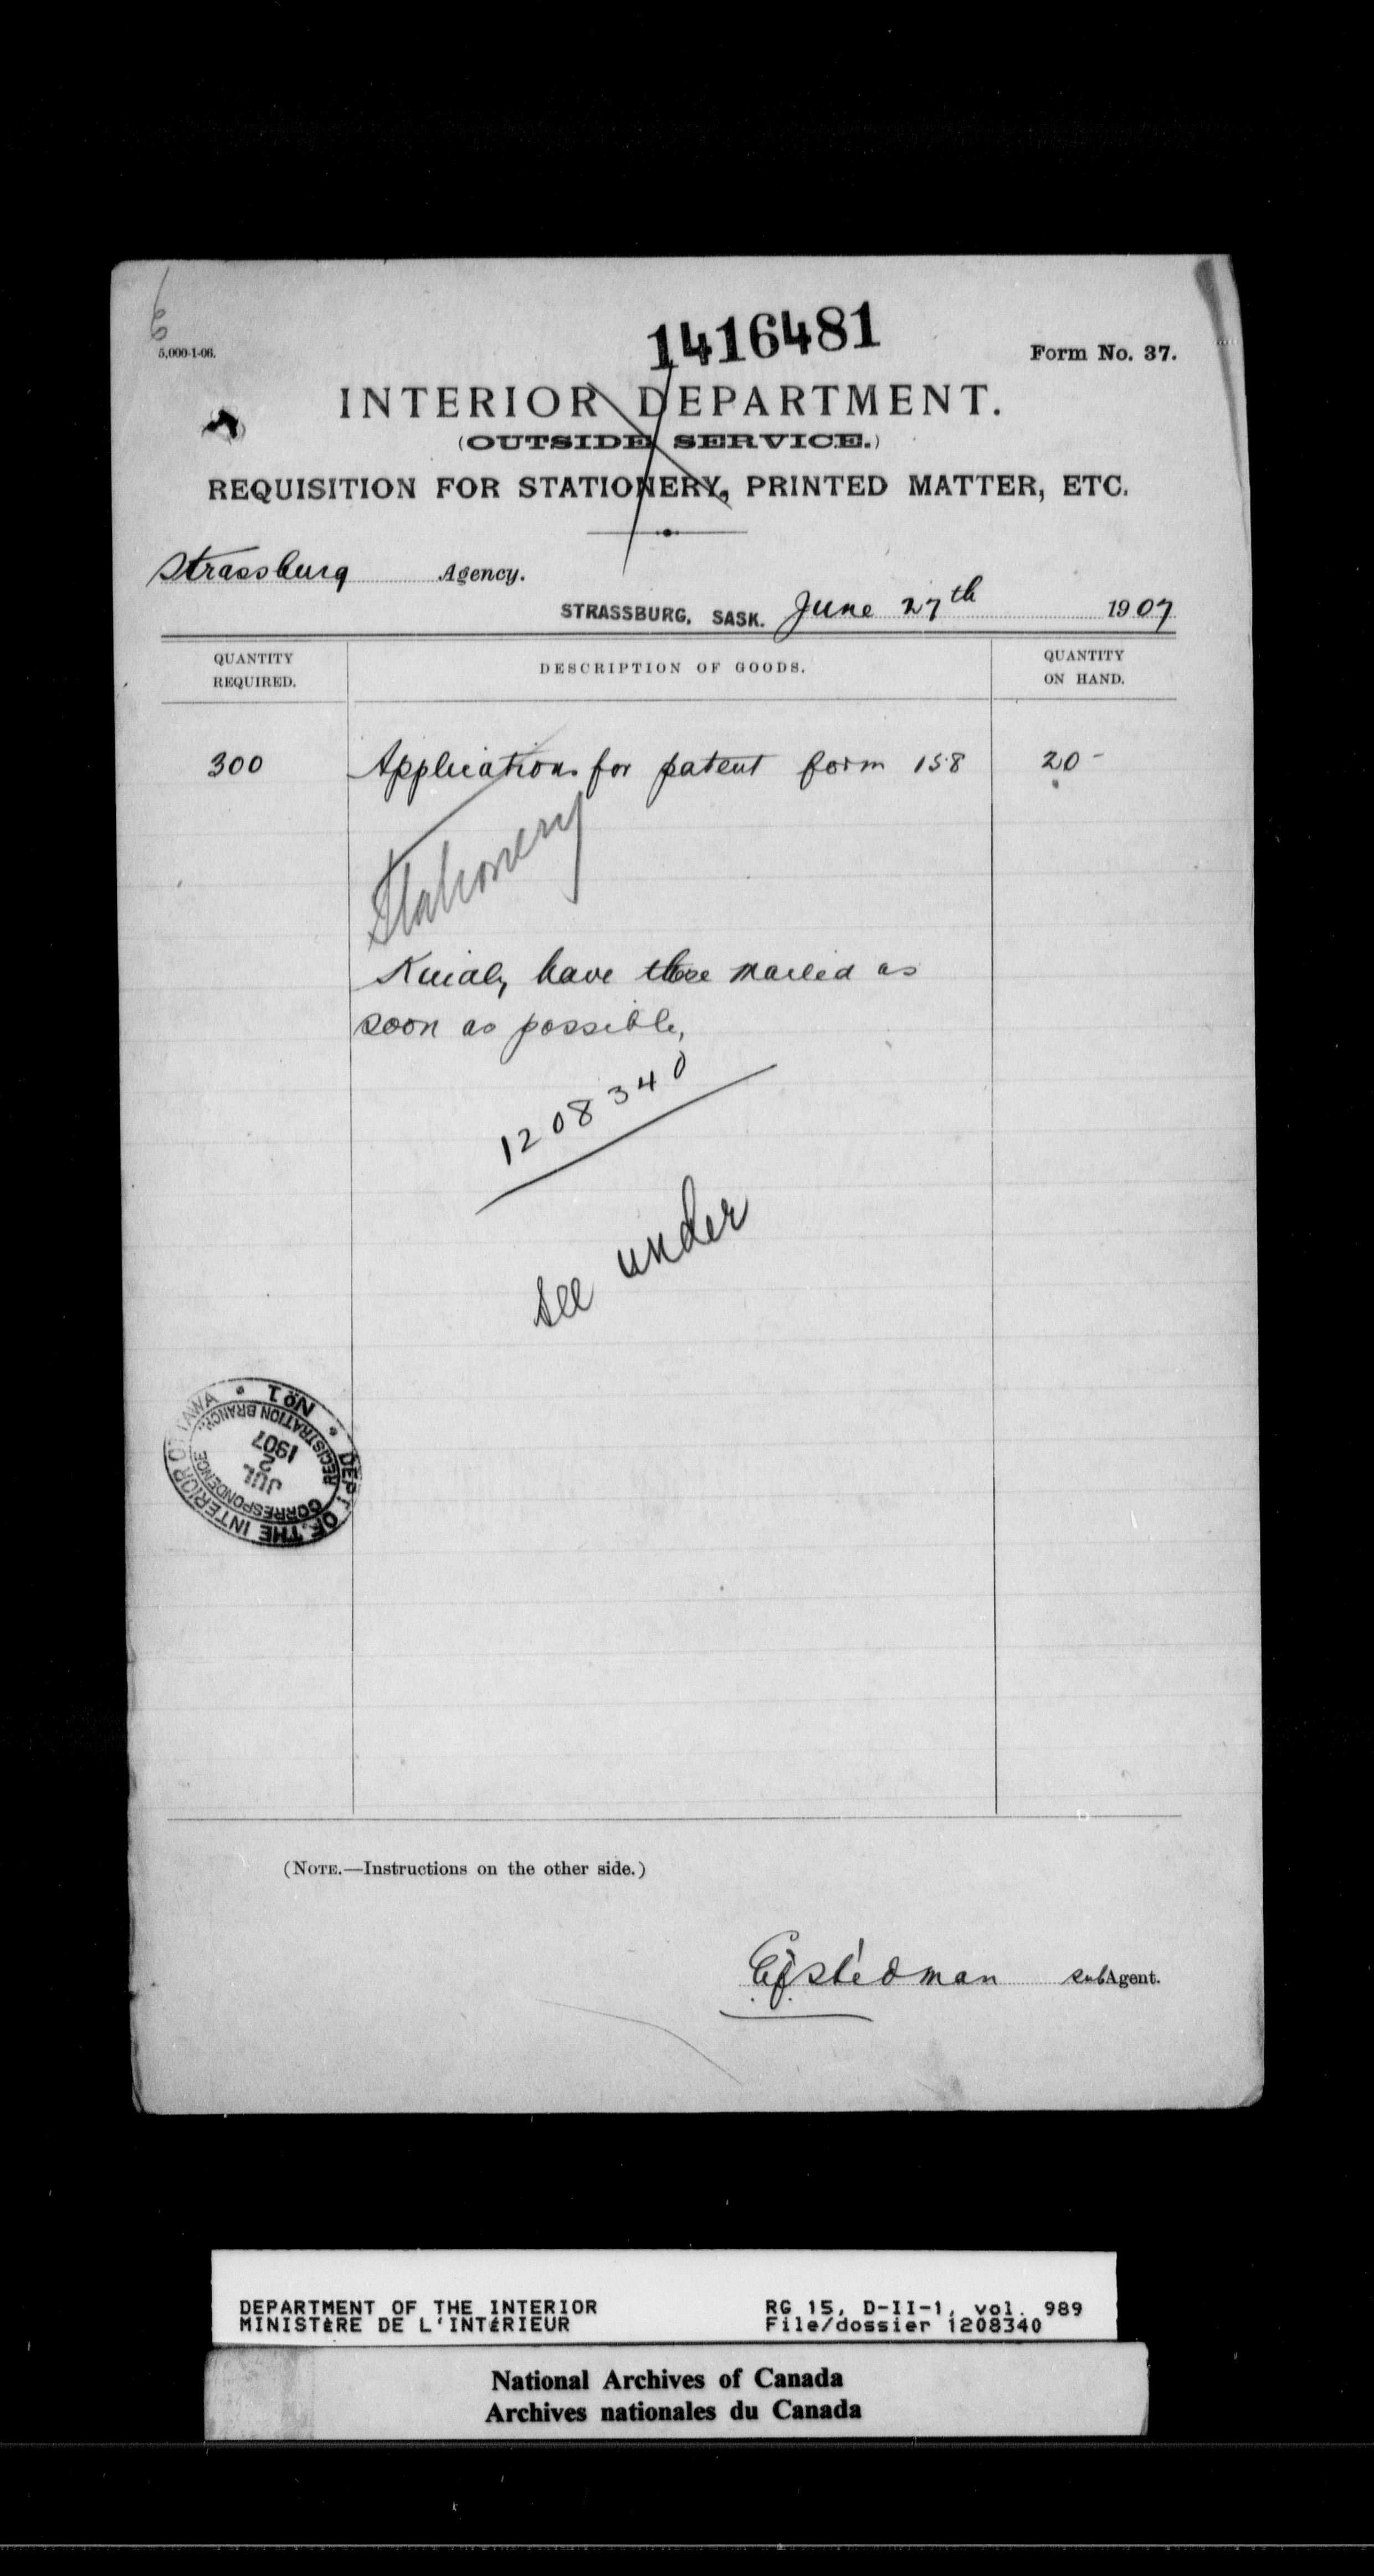 6
1416481
5,000-1-06.
Form No. 37.
INTERIOR DEPARTMENT.
(OUTSIDE SERVICE.)
REQUISITION FOR STATIONERY, PRINTED MATTER, ETC.
Strassburg Agency.
STRASSBURG, SASK. June 27th 1907
QUANTITY REQUIRED.
DESCRIPTION OF GOODS.
QUANTITY ON HAND.
300 Applications for patent form 158 20-
Stationery
Kindly have these mailed as
soon as possible,
1208340
See under
DEPT. OF THE INTERIOR OTTAWA
No 1
CORRESPONDENCE REGISTRATION BRANCH
JUL
2
1907
(NOTE.—Instructions on the other side.)
Stedman sub Agent.
DEPARTMENT OF THE INTERIOR
MINISTÈRE DE L'INTÉRIEUR
RG 15, D-II-1, vol. 989
File/dossier 1208340
National Archives of Canada
Archives nationales du Canada